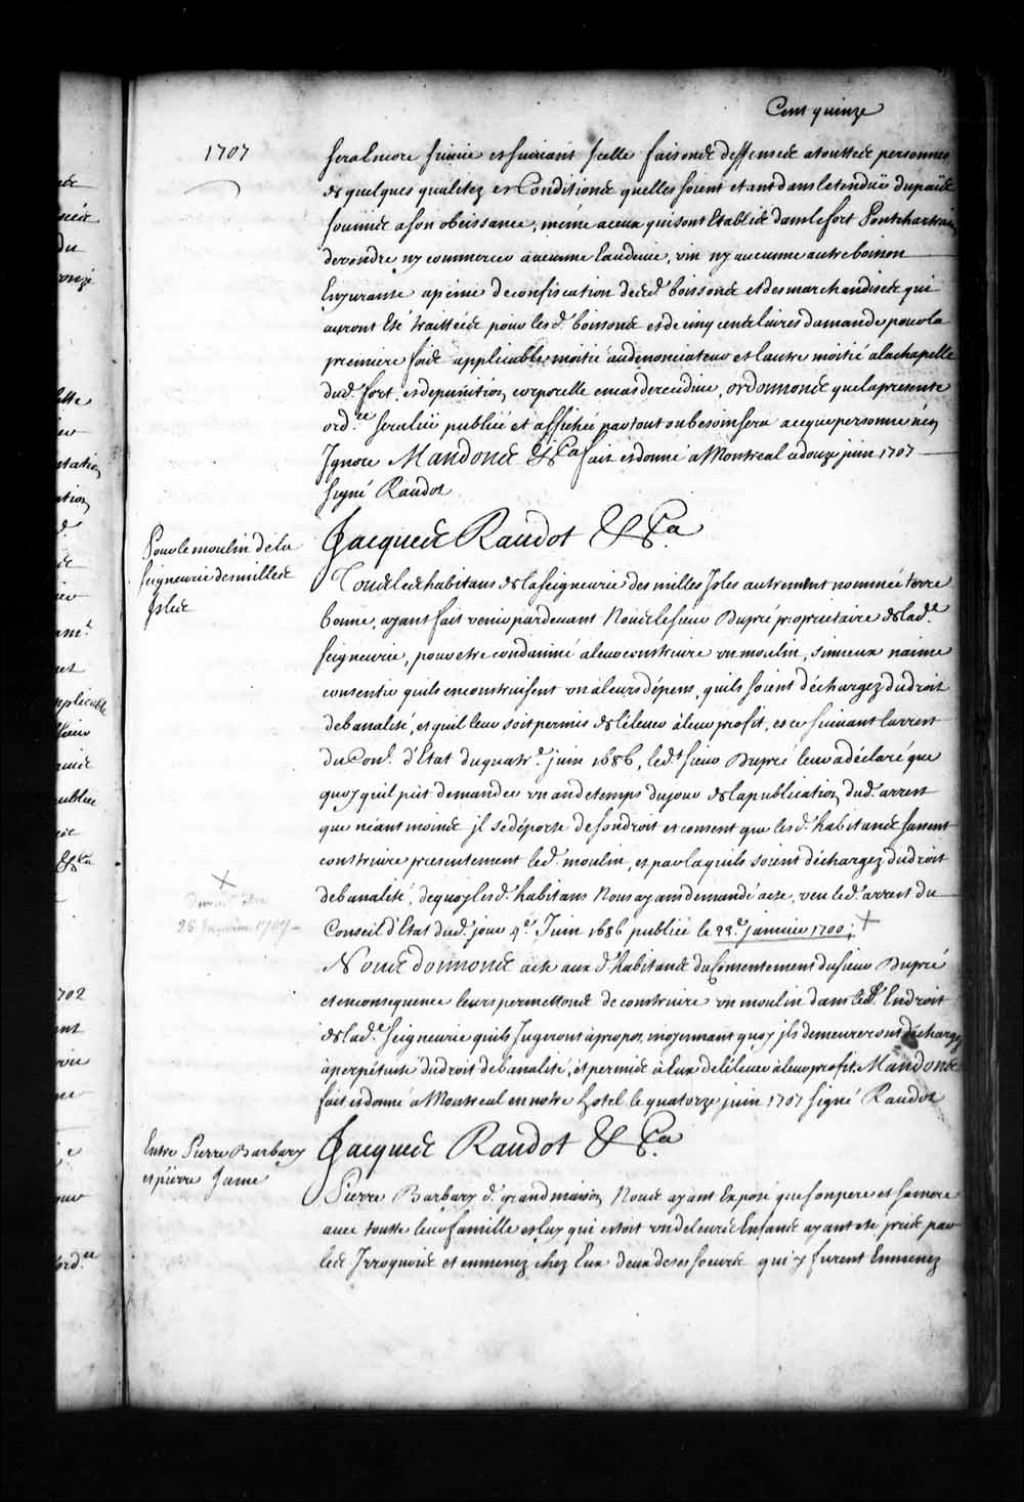 Cent quinze
1707
sera Encore suivie et suivant icelle faisons deffenses a touttes personnes
de quelques qualitez et Conditions quelles soient etant dans letendüe du païs
soumis a son obeissance, même a ceux qui sont Etablis dans le fort Pontchartrain
de vendre ny commercer aucunne Eaudevie, vin ny aucunne autre boisson
Enyvrante a peine de confiscation desd. boissons et des marchandises qui
auront Eté traittées pour lesd. boissons et de cinq cent livres damande pour la
premiere fois applicable moitié au denonciateur et lautre moitié a la chapelle
dud. fort, et de punition corporelle en cas de recidive, ordonnons que la presente
ord.ce sera lüe publiée et affichée par tout ou besoin sera a ce que personne nen
Ignore Mandons &.Ca fait et donné a Montreal a douze juin 1707
signé Raudot
Pour le moulin de la
seigneurie des milles
Isles
Jacques Raudot &.Ca
Tous les habitans de la seigneurie des milles Isles autrement nommée terre
bonne, ayant fait venir pardevant Nous le sieur Dupré proprietaire de lad.e
seigneurie, pour etre condamné a leur construire un moulin, si mieux naime
consentir quils en construisent un a leurs dépens, quils soient déchargez du droit
de banalité, et quil leur soit permis de lélever à leur profit, et ce suivant larrest
du Con.l d'Etat du quatr.e juin 1686, led.t sieur Dupré leur a déclaré que
quoy quil pût demander un an de temps du jour de la publication dud. arrest
que néantmoins il se déporte de son droit et consent que lesd. habitans fassent
construire presentement led. moulin, et par la quils soient déchargez du droit
de banalité, de quoy lesd. habitans Nous ayans demandé acte, veu led. arrest du
Conseil d'Etat dud. jour 4.e Juin 1686 publié le 23.e janvier 1700; +
+
1707
Nous donnons acte aux d. habitans du Consentement du sieur Dupré
et en consequence leurs permettons de construire un moulin dans led. Endroit
de lad.e seigneurie quils Jugeront à propos, moyennant quoy ils demeureront décharges
à perpétuité du droit de banalité, et permis à Eux de lélever à leur profit. Mandons
fait et donné a Montreal en notre hotel le quatorze juin 1707 signé Raudot
Entre Pierre Barbary
et pierre Jamme
Jacques Raudot &.Ca
Pierre Barbary d. grandmaison Nous ayant Exposé que son pere et sa mere
avec toutte leur famille et luy qui estoit un de leurs Enfans ayant eté pris par
les Irroquois et emmenez chez Eux deux de ses soeurs qui y furent Emmenez